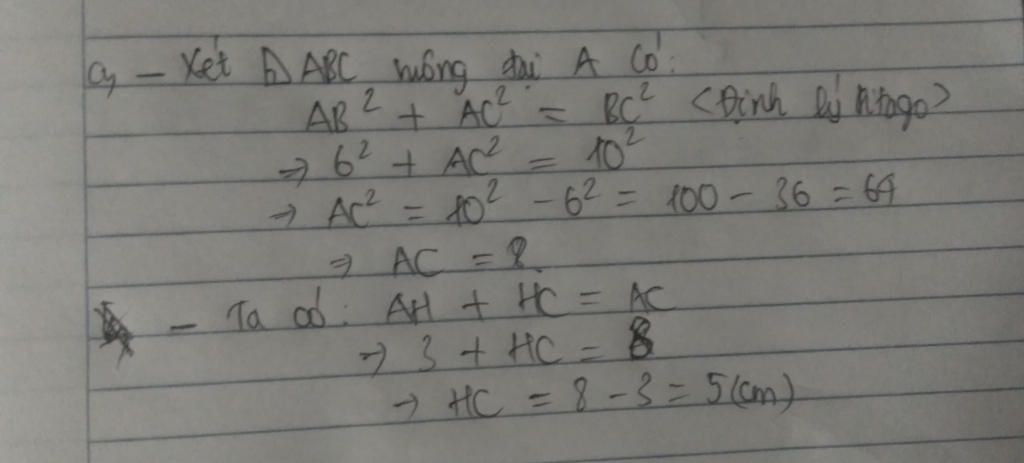 a, - Xét △ ABC vuông tại A Có:
AB² + AC² = BC² <Định lý Pitago>
⇒ 6² + AC² = 10²
⇒ AC² = 10² - 6² = 100 - 36 = 64
⇒ AC = 8
- Ta có: AH + HC = AC
⇒ 3 + HC = 8
→ HC = 8 - 3 = 5(cm)